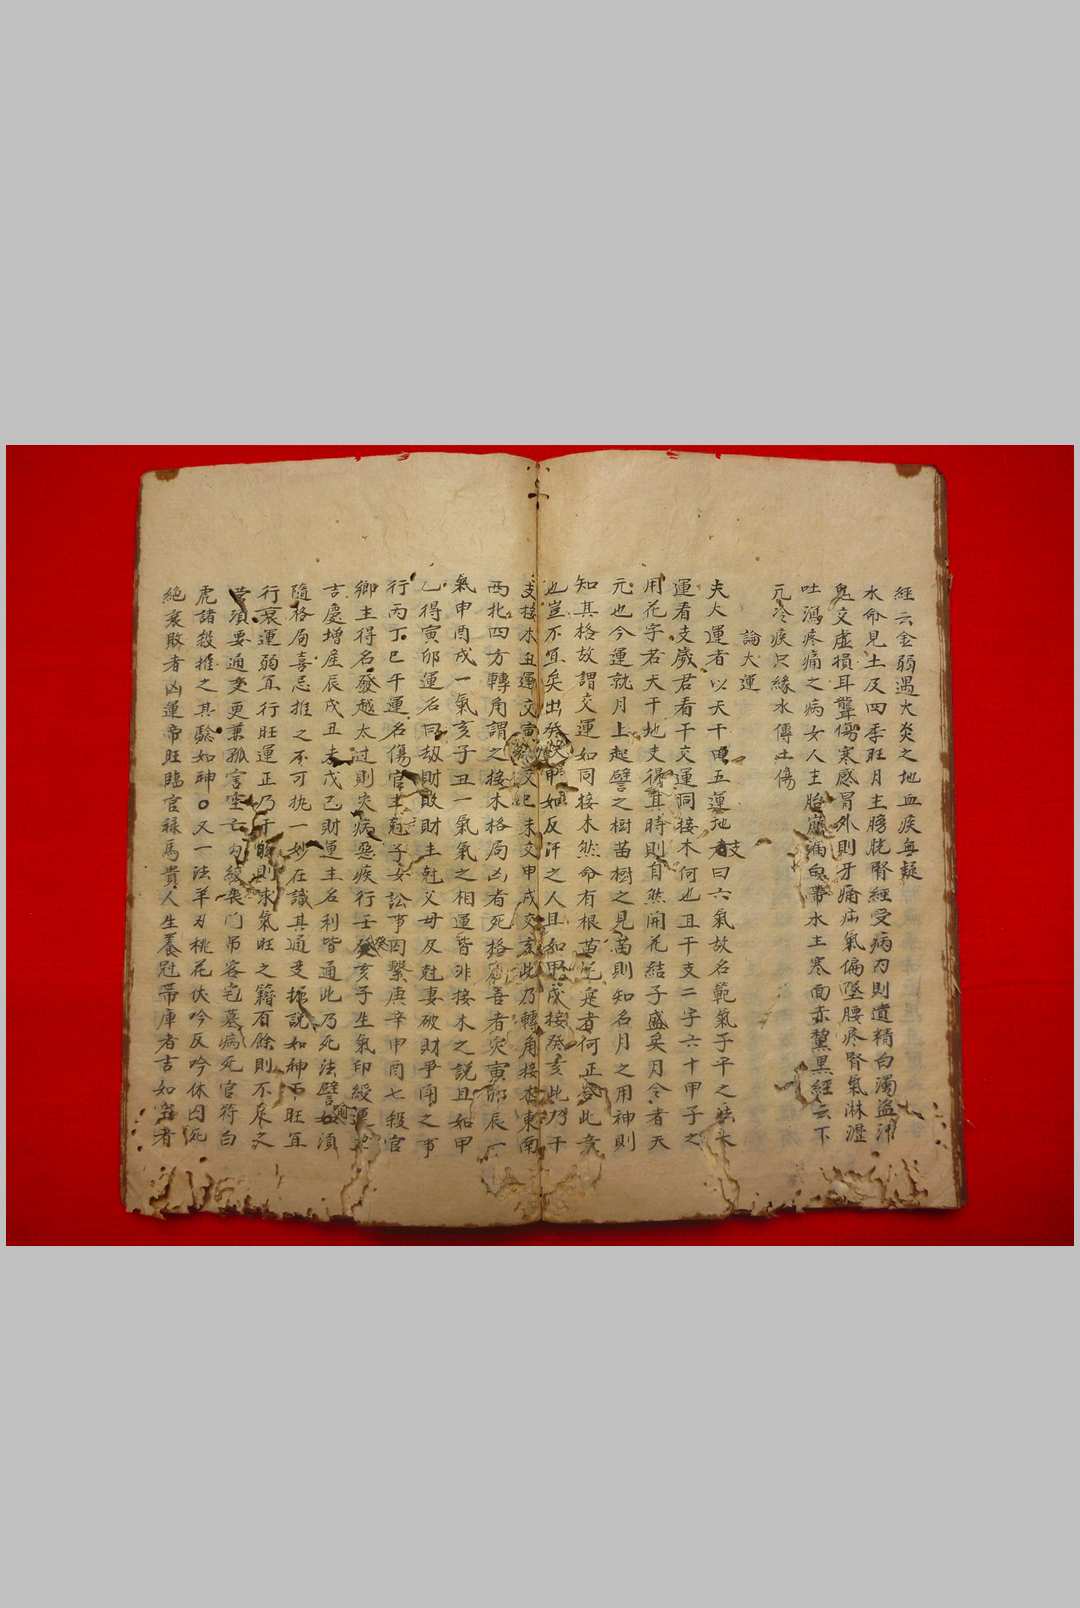 經云金弱遇火炎之地血疾無疑
水命見土及四季旺月主膀胱腎經受病內則遺精白濁盜汗
鬼交虛損耳聾傷寒感冒外則牙痛疝氣偏墜腰疼腎氣淋瀝
吐瀉疼痛之病女人主胎崩漏白帶水主寒面赤黧黑經云下
元冷疾只緣水傳土傷
論大運
夫大運者以天干曰五運地支曰六氣故名範氣子平之法大
運看支歲君看干交運同接木何也且干支二字六十甲子之
用花字若天干地支得其時則自然開花結子盛矣月令者天
元也今運就月上起譬之樹苗樹之見苗則知名月之用神則
知其格故謂交運如同接木然命有根苗花實者何正合此意
也豈不宜矣出癸入甲如反汗之人且如甲戌接癸亥此乃干
支接木丑運交寅辰交巳未交申戌交亥此乃轉角接木東南
西北四方轉角謂之接木格局凶者死格局吾者灾寅卯辰一
氣申酉戌一氣亥子丑一氣氣之相運皆非接木之說且如甲
乙得寅卯運名曰劫財敗財主尅父母及尅妻破財爭鬥之事
行丙丁巳午運名傷官主尅子女訟事囚繫庚辛申酉七殺官
鄉主得名發越太过則灾病惡疾行壬癸亥子生氣印綬運主
吉慶增產辰戌丑未戊己財運主名利皆通此乃死法譬如須
隨格局喜忌推之不可執一妙在識其通变拆說如神而旺宜
行衰運弱宜行旺運正乃干弱則求氣旺之籍有餘則不㡳之
營須要通变更兼孤害空亡勾絞喪門吊客宅墓病死官符白
虎諸殺推之其驗如神○又一法羊刃桃花伏吟反吟休囚死
絕衰敗者凶運帝旺臨官禄馬貴人生養冠帶庫者吉如者